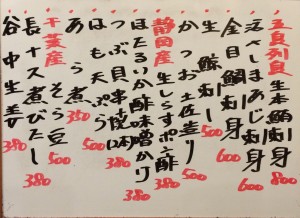 五島列島産
生本鮪刺身 800
活〆しまあじ刺身 600
金目鯛刺身 600
生鯨刺し 500
かつお土佐造り 500
静岡産
生しらすポン酢 380
ほたるいか酢味噌かけ 380
つぶ貝串焼(2本) 380
はも天ぷら 500
あら煮 350
千葉産
そら豆 500
長ナス煮びたし 380
谷中生姜 380